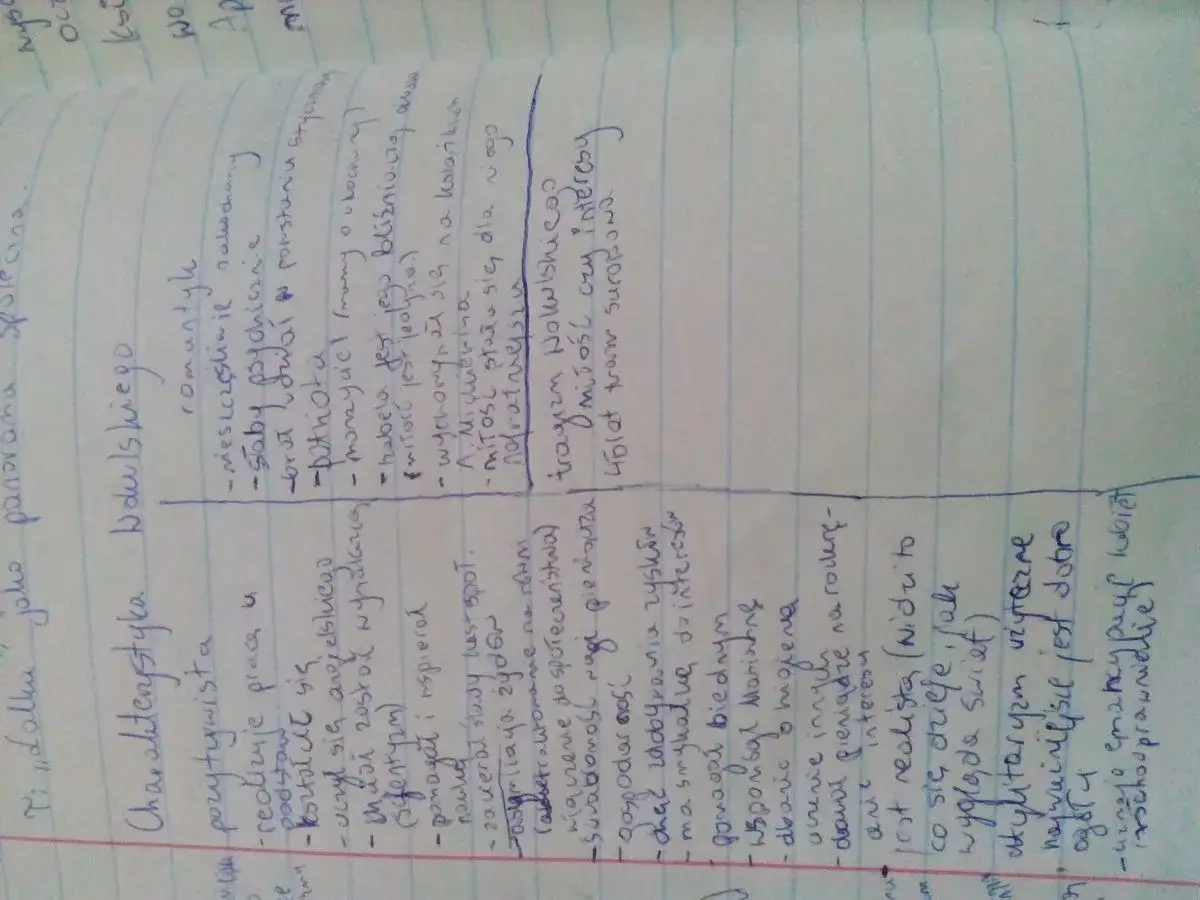 T: "Lalka" jako panorama społeczna.
Charakterystyka Wokulskiego
pozytywista
- realizuje pracę u
podstaw
- kształcił się
- uczył się angielskiego
- chciał zostać wynalazcą
(scjentyzm)
- pomagał i wspierał
naukę
- zawierał
- asymilacja żydów
włączenie do społeczeństwa)
- świadomość wagi pieniądza
- gospodarność
- chęć zdobywania zysków
- ma smykałkę do interesów
- pomagał biednym
- wspomógł Mariannę
- dbanie o higienę
uczenie innych
- dawał pieniądze na rozkręc-
anie interesu
jest realistą (widzi to
co się dzieje, jak
wygląda świat)
utylitaryzm użyteczne
najważniejsze jest dobro
ogółu
- uznaje emancypację kobiet
równouprawnienie
romantyk
- nieszczęśliwie zakochany
- słaby psychicznie
- brał udział w powstaniu styczniowym
- patriota
- marzyciel (marzy o ukochanej)
- Izabela jest jego bliźniaczą duszą
(miłość jest jedyna)
- wychowywał się na książkach
A. Mickiewicza
- miłość stała się dla niego
najważniejsza
tragizm Wokulskiego
miłość czy interesy